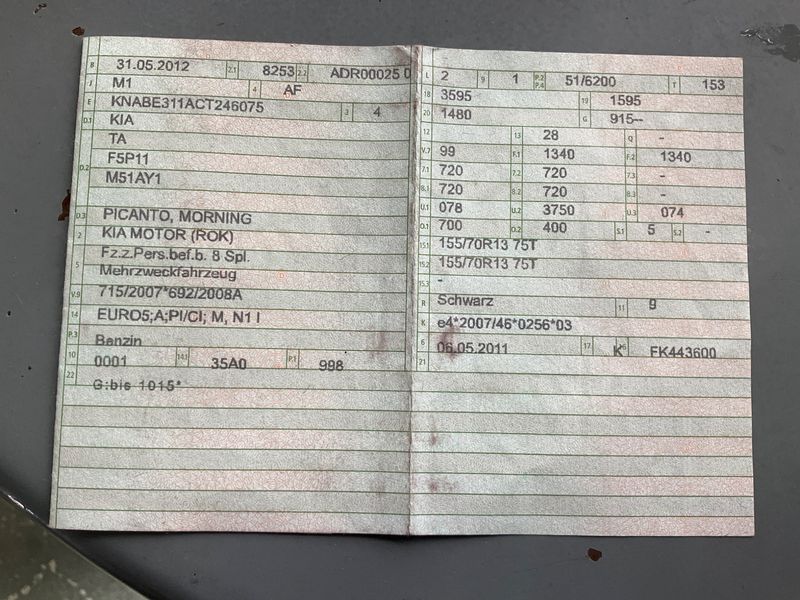 B 31.05.2012 2.1 8253 2.2 ADR00025 0
J M1 4 AF
E KNABE311ACT246075 3 4
D.1 KIA
TA
D.2 F5P11
M51AY1
D.3 PICANTO, MORNING
2 KIA MOTOR (ROK)
5 Fz.z.Pers.bef.b. 8 Spl.
Mehrzweckfahrzeug
V.9 715/2007*692/2008A
14 EURO5;A;PI/CI; M, N1 I
P.3 Benzin
10 0001 14.1 35A0 P.1 998
22 G:bis 1015*
L 2 9 1 P.2 P.4 51/6200 T 153
18 3595 19 1595
20 1480 G 915--
12 13 28 Q -
V.7 99 F.1 1340 F.2 1340
7.1 720 7.2 720 7.3 -
8.1 720 8.2 720 8.3 -
U.1 078 U.2 3750 U.3 074
O.1 700 O.2 400 S.1 5 S.2 -
15.1 155/70R13 75T
15.2 155/70R13 75T
15.3 -
R Schwarz 11 9
K e4*2007/46*0256*03
6 06.05.2011 17 K 16 FK443600
21